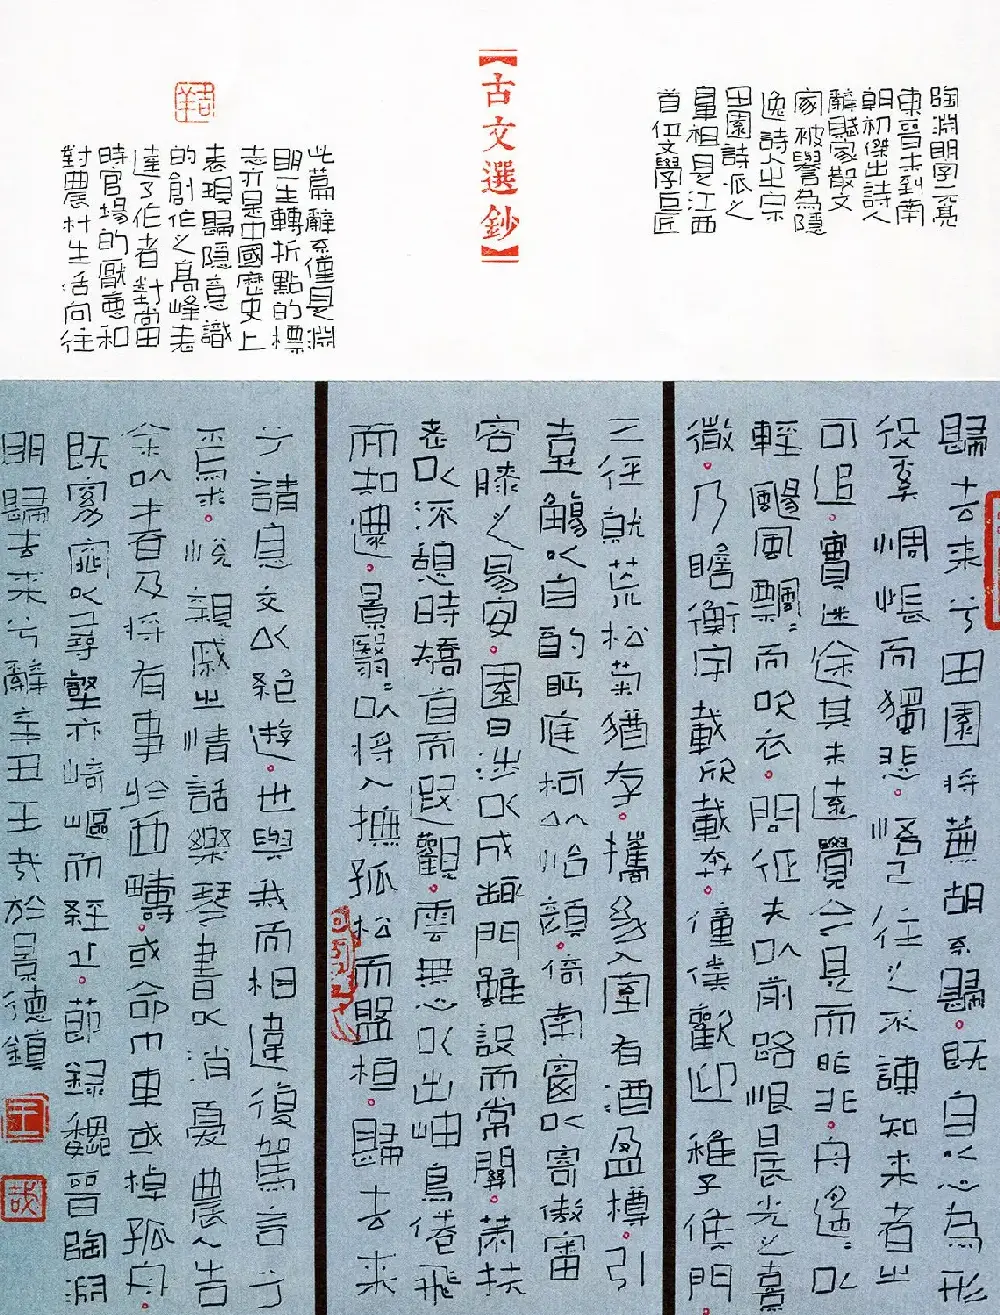 陶淵明字元亮
東晉末到南
朝初傑出詩人
辭賦家散文
家被譽為隱
逸詩人之宗
田園詩派之
鼻祖是江西
首位文學巨匠
【古文選鈔】
此篇辭不僅是淵
明一生轉折點的標
志亦是中國歷史上
表現歸隱意識
的創作之高峰表
達了作者對當
時官場的厭惡和
對農村生活向往
歸去来兮田園将蕪胡不歸。既自以心為形
役奚惆悵而獨悲。悟已往之不諫知来者之
可追。實迷途其未遠覺今是而昨非。舟遥遥以
輕颺風飄飄而吹衣。問征夫以前路恨晨光之熹
微。乃瞻衡宇載欣載奔。僮僕歡迎稚子候門
三徑就荒松菊猶存。攜幼入室有酒盈樽。引
壺觴以自酌眄庭柯以怡顔。倚南窗以寄傲審
容膝之易安。園日涉以成趣門雖設而常關。策扶
老以流憩時矯首而遐觀。雲無心以出岫鳥倦飛
而知還。景翳翳以将入撫孤松而盤桓。歸去来
兮請息交以絕遊。世與我而相違復駕言兮
焉求。悦親戚之情話樂琴書以消憂農人告
余以春及将有事於西疇。或命巾車或棹孤舟。
既窈窕以尋壑亦崎嶇而經丘。節録魏晉陶淵
明歸去来兮辭辛丑王於景德鎮
王